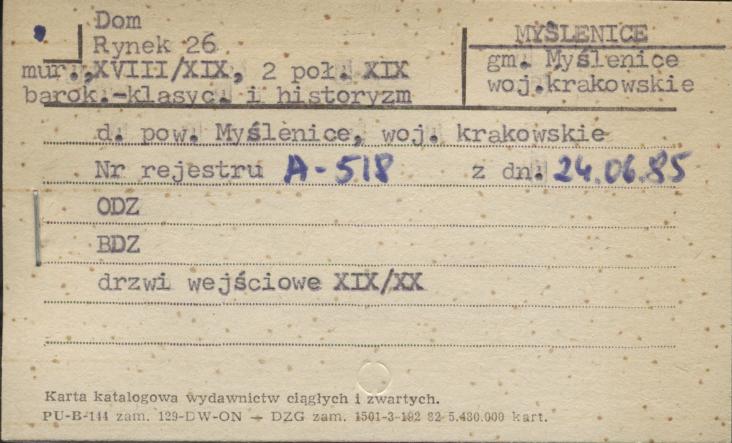 Dom
Rynek 26
mur., XVIII/XIX, 2 poł. XIX
barok.-klasyc. i historyzm
MYŚLENICE
gm. Myślenice
woj.krakowskie
d. pow. Myślenice, woj. krakowskie
Nr rejestru A-518 z dn. 24.06.85
ODZ
BDZ
drzwi wejściowe XIX/XX
Karta katalogowa wydawnictw ciągłych i zwartych.
PU-B-144 zam. 129-DW-ON — DZG zam. 1501-3-192 82 5.480.000 kart.